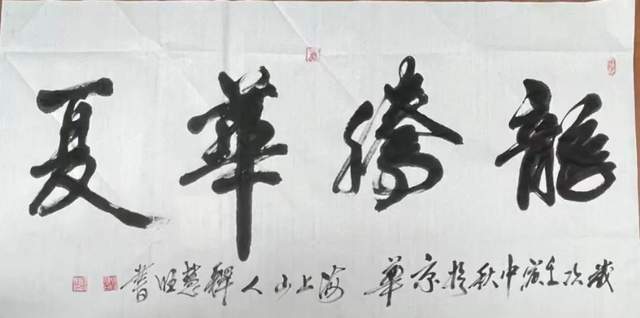 龍騰華夏
歲次壬中秋於京華 海上山人釋慧旺書